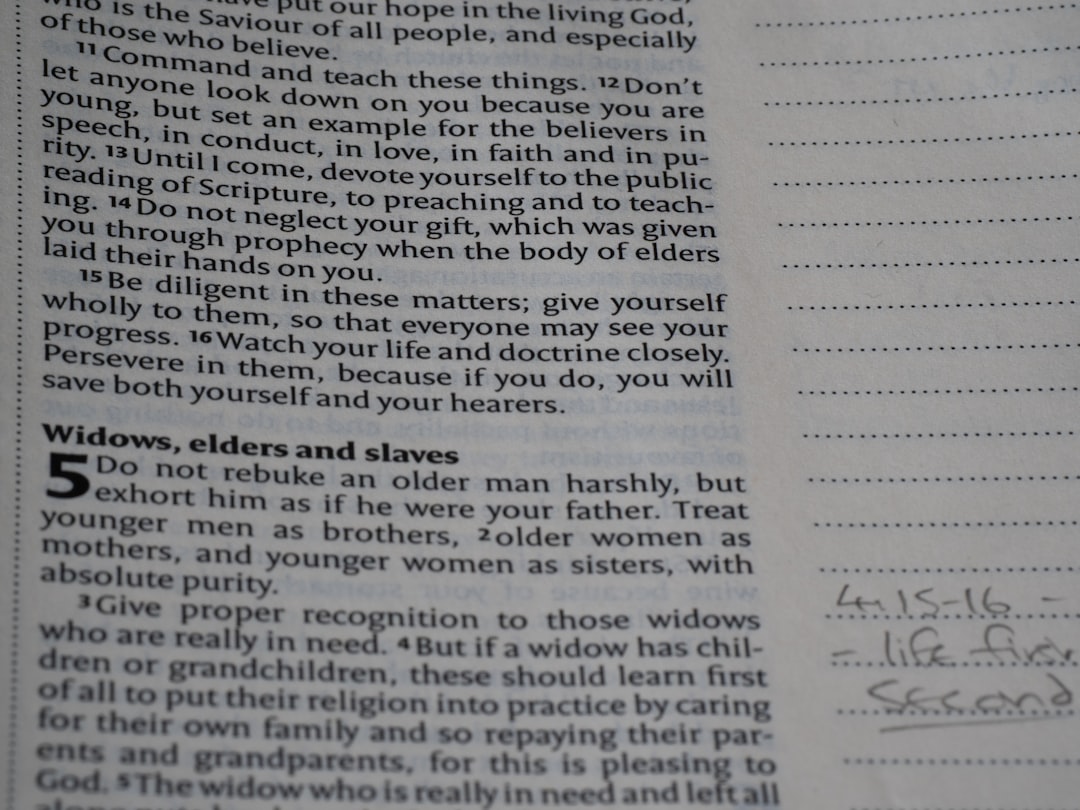 who is the Saviour of all people, and especially
of those who believe.
11 Command and teach these things. 12 Don't
let anyone look down on you because you are
young, but set an example for the believers in
speech, in conduct, in love, in faith and in pu-
rity. 13 Until I come, devote yourself to the public
reading of Scripture, to preaching and to teach-
ing. 14 Do not neglect your gift, which was given
you through prophecy when the body of elders
laid their hands on you.
15 Be diligent in these matters; give yourself
wholly to them, so that everyone may see your
progress. 16 Watch your life and doctrine closely.
Persevere in them, because if you do, you will
save both yourself and your hearers.
Widows, elders and slaves
5 Do not rebuke an older man harshly, but
exhort him as if he were your father. Treat
younger men as brothers, 2 older women as
mothers, and younger women as sisters, with
absolute purity.
3 Give proper recognition to those widows
who are really in need. 4 But if a widow has chil-
dren or grandchildren, these should learn first
of all to put their religion into practice by caring
for their own family and so repaying their par-
ents and grandparents, for this is pleasing to
God. 5 The widow who is really in need and left all
4.15-16 -
- life first
second